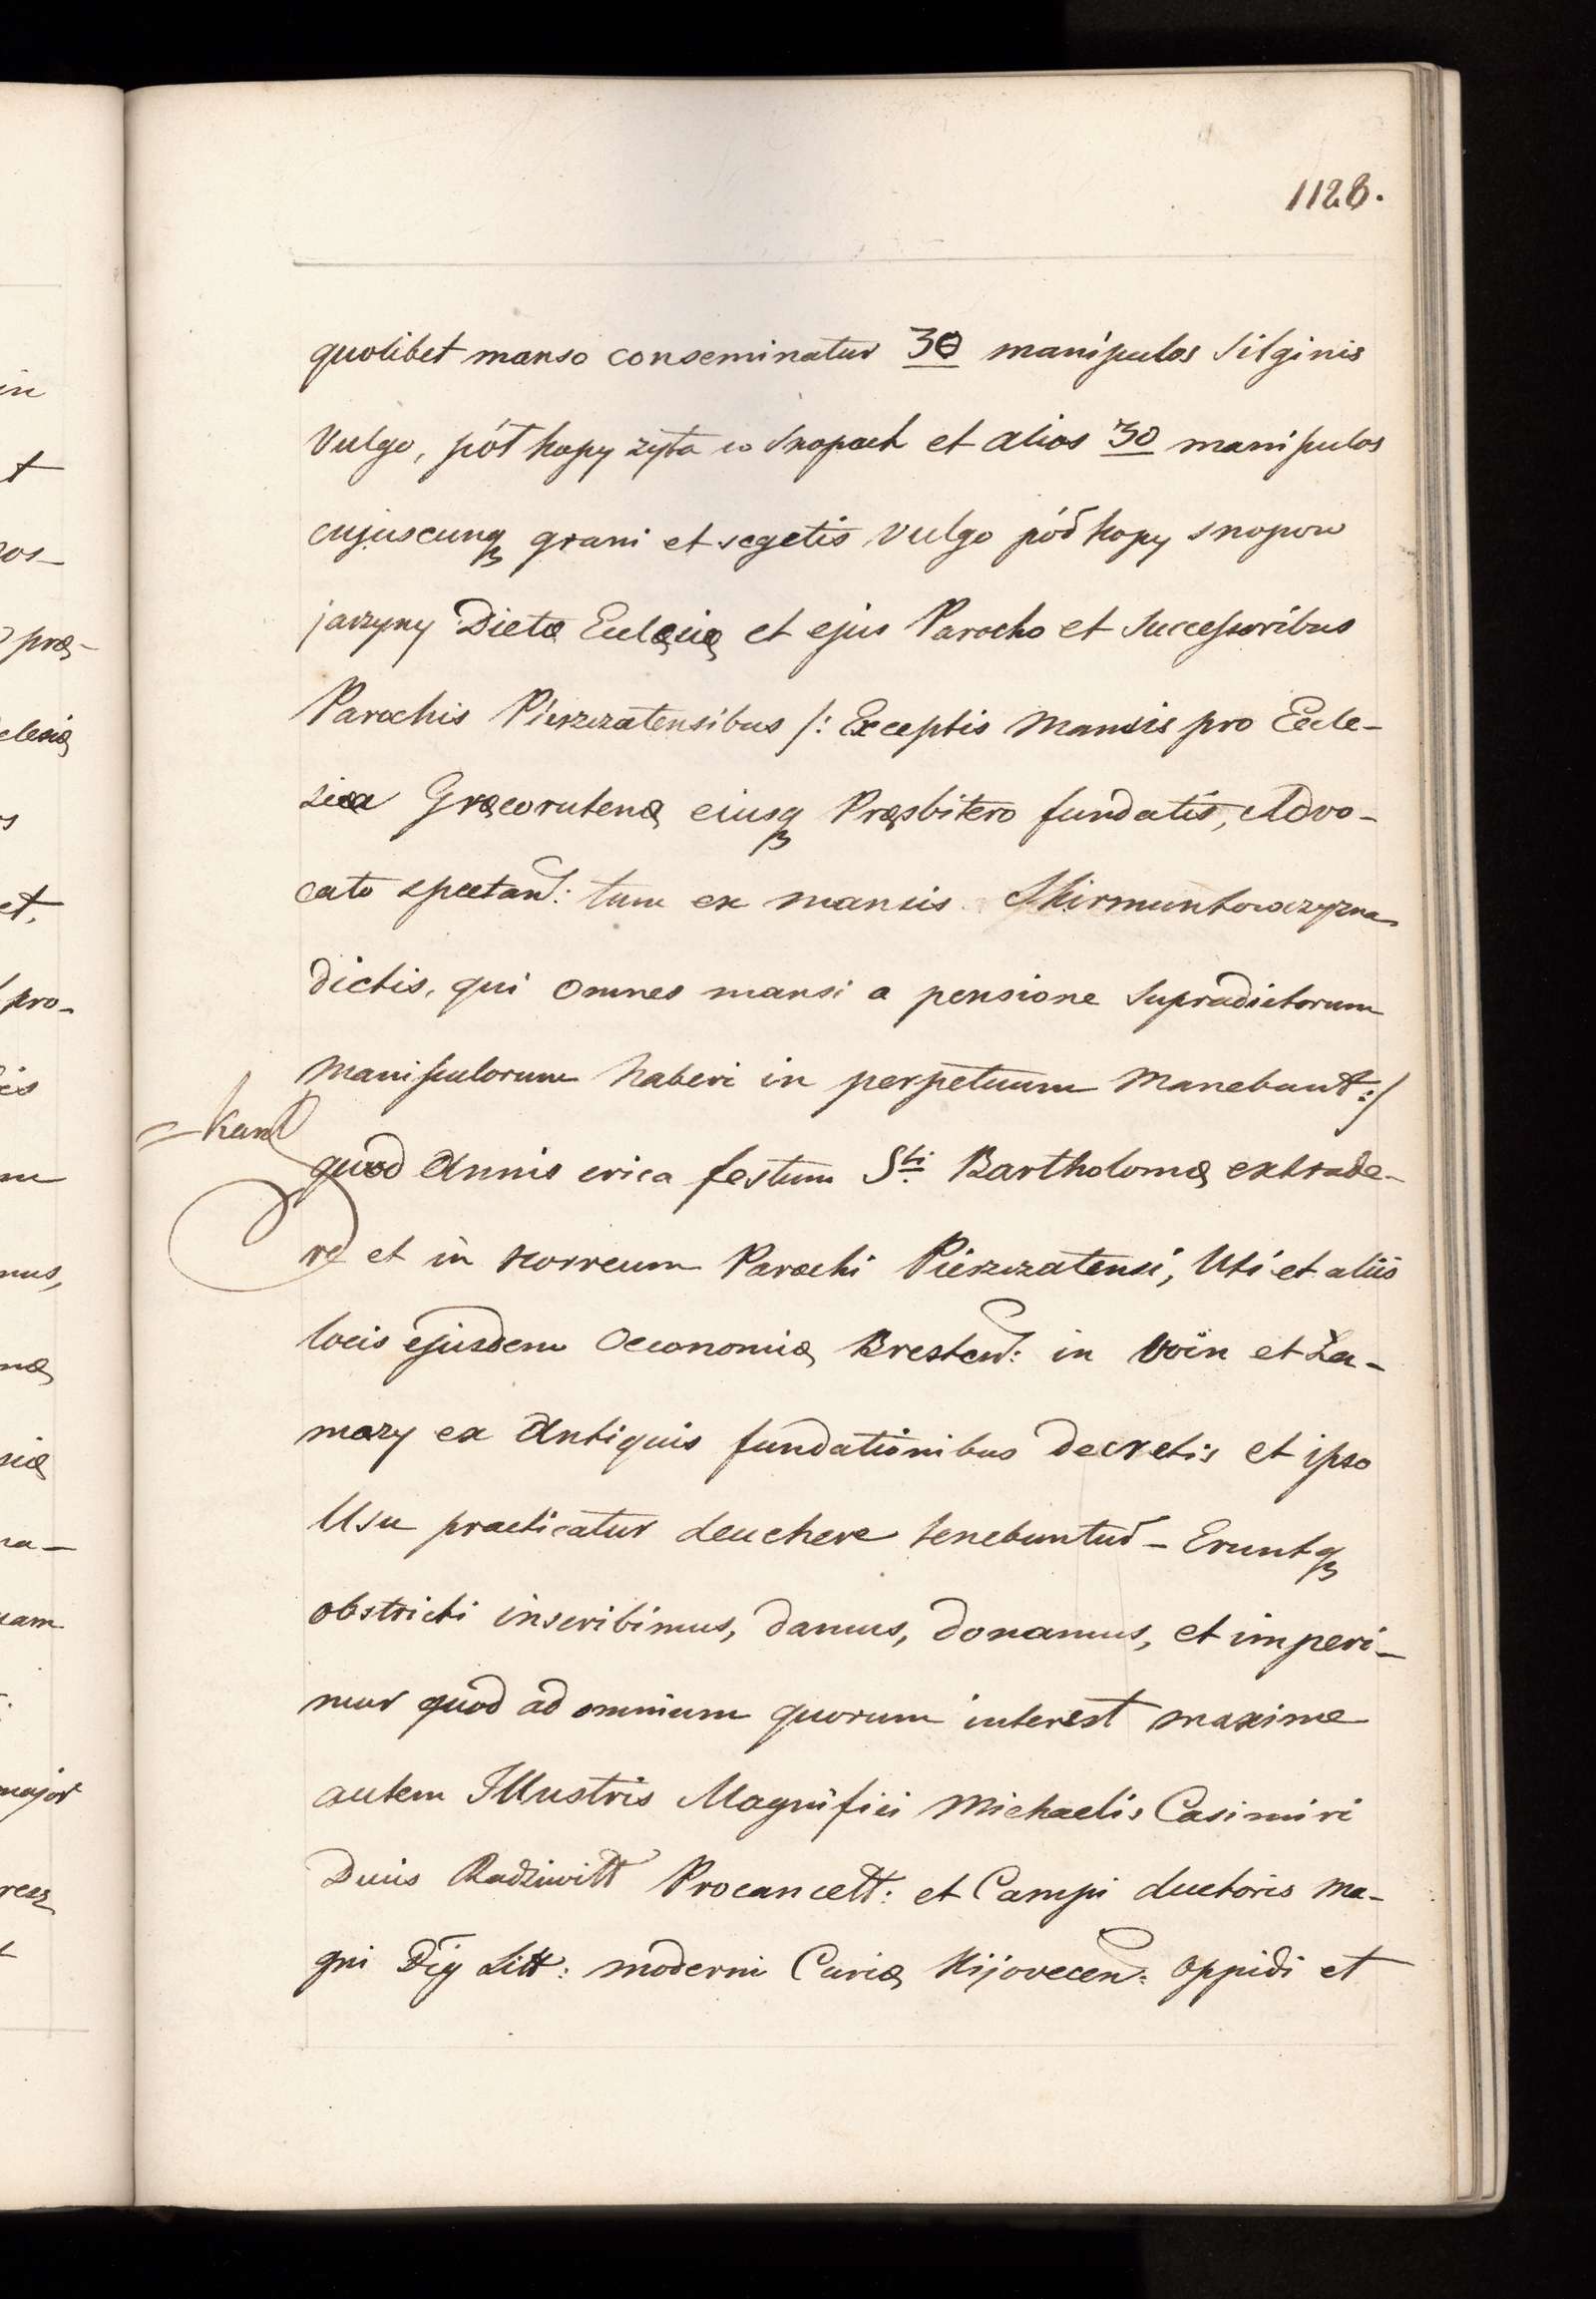 1128.
quolibet manso conseminatur 30 manipulos Silginis
Vulgo, pół kopy zyta w Snopach et alios 30 manipulos
cujuscunq grani et segetis vulgo pół kopy snopow
jarzyny Dictæ Eccleę et ejus Parocho et Successoribus
Parochis Pierzczatensibus /: Exceptis Mansis pro Eccle-
siæ Græcorutenę ejusq Pręsbitero fundatis, Advo-
cato spectan: tum ex mansis Skirmuntowszyzna
dictis, qui omnes mansi a pensione Supradictorum
Manipulorum haberi in perpetuum Manebunt :/
quod Annis circa festum Sti Bartholomę extrade-
re et in Horreum Parochi Pierzczatensi, Uti et aliis
locis ejusdem Oeconomię Bresten: in Woin et Ło-
mazy ex Antiquis fundationibus decretis et ipso
Usu practicatur deuchere tenebuntur - Eruntq
obstricti inscribimus, damus, donamus, et imperi-
mur quod ad omnium quorum interest maxime
autem Illustris Magnifici Michaelis Casimiri
Ducis Radziwiłł Procancell: et Campi ductoris Ma-
gni Dig Litt: moderni Curię Kijovecen: Oppidi et
in
t
os-
præ-
clesię
s
et,
pro-
is
m
mus,
nę
się
na-
uam
major